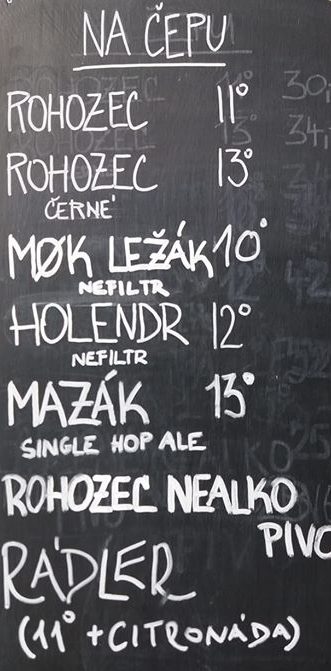 NA ČEPU
ROHOZEC 11°
ROHOZEC 13°
ČERNÉ
MØK LEŽÁK 10°
NEFILTR
HOLENDR 12°
NEFILTR
MAZÁK 13°
SINGLE HOP ALE
ROHOZEC NEALKO
PIVO
RÁDLER
(11° + CITRONÁDA)